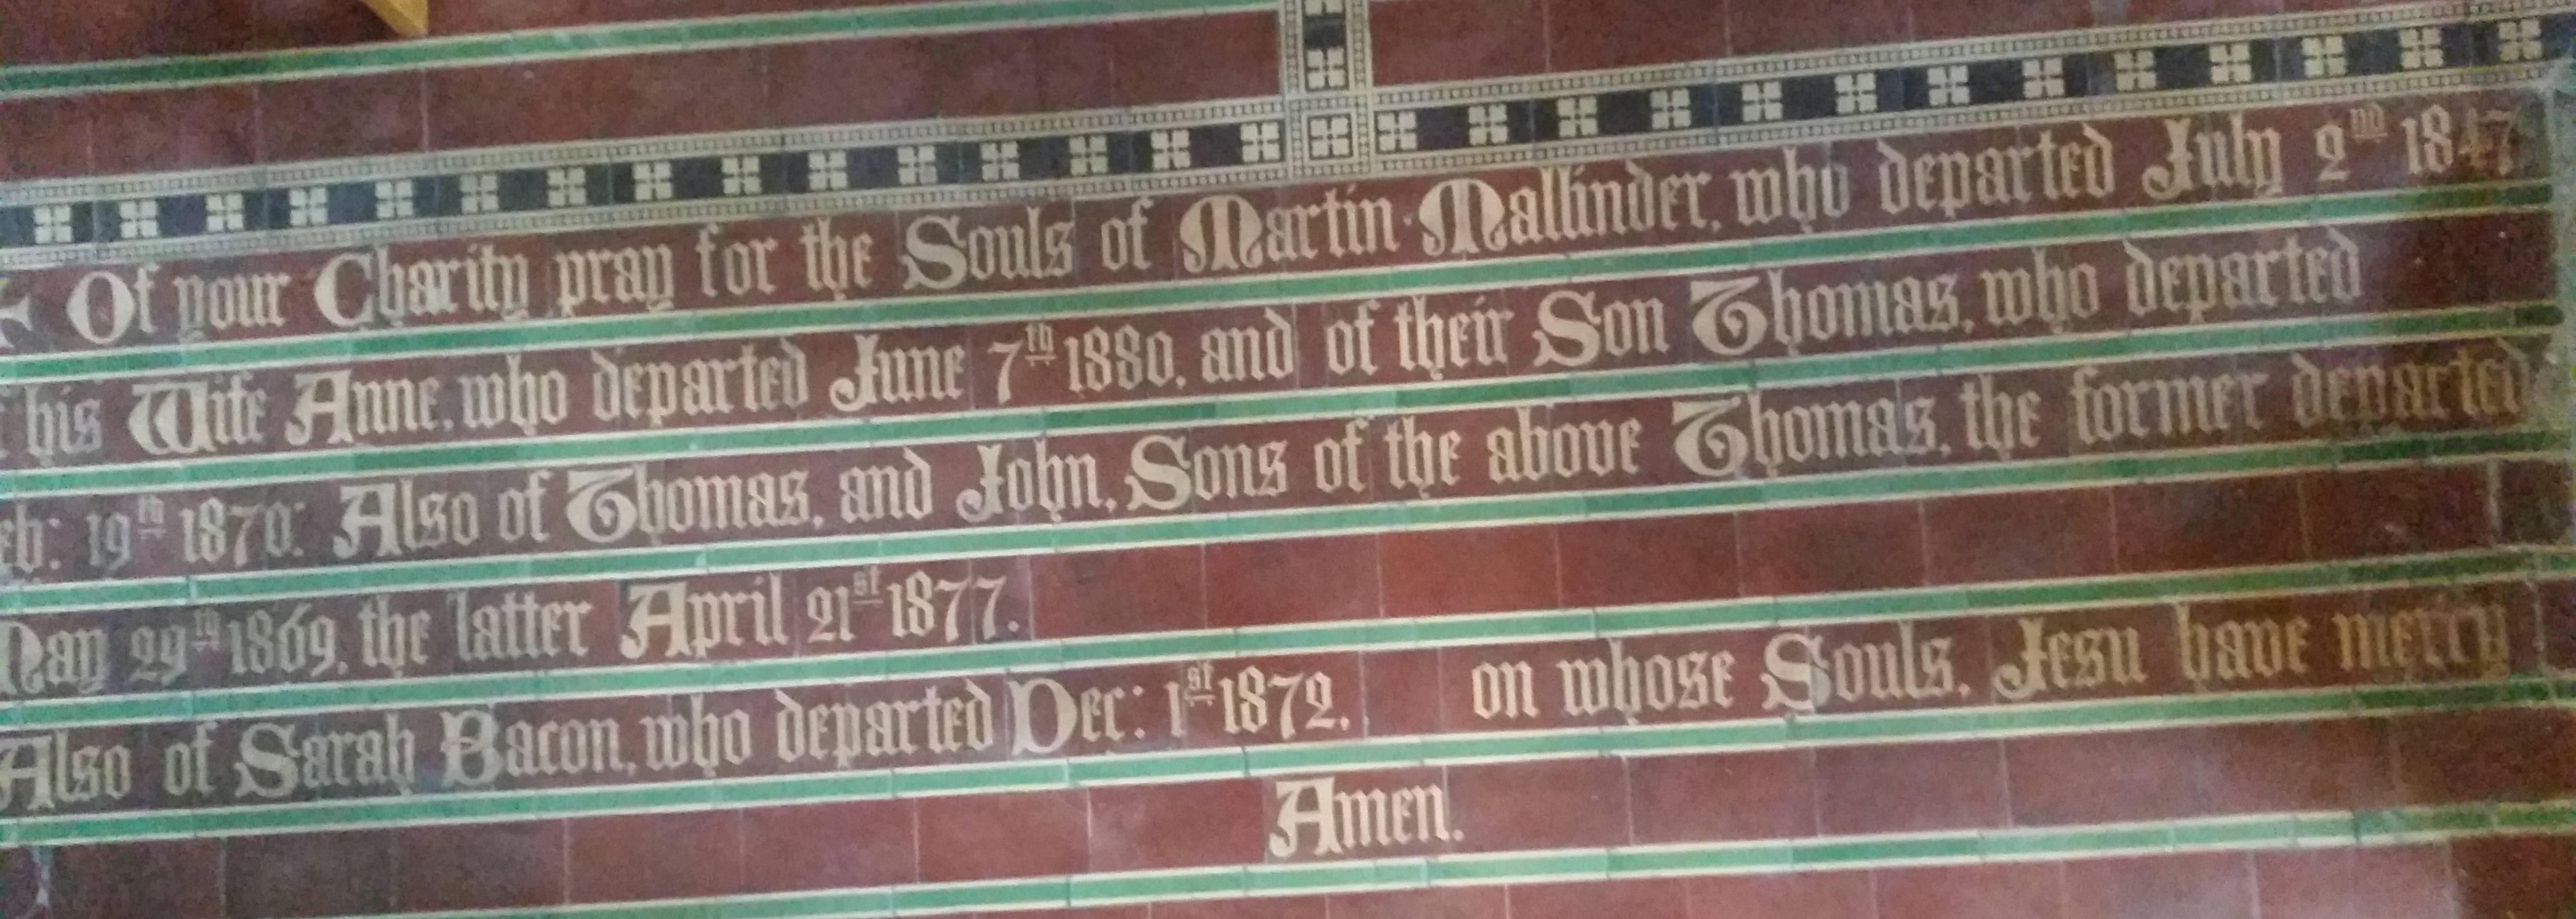 Of your Charity pray for the Souls of Martin Mallinder, who departed July 2nd 1847
his Wife Anne, who departed June 7th 1880, and of their Son Thomas, who departed
eb: 19th 1870: Also of Thomas, and John, Sons of the above Thomas, the former departed
May 29th 1869, the latter April 21st 1877.
Also of Sarah Bacon, who departed Dec: 1st 1872, on whose Souls, Jesu have mercy
Amen.